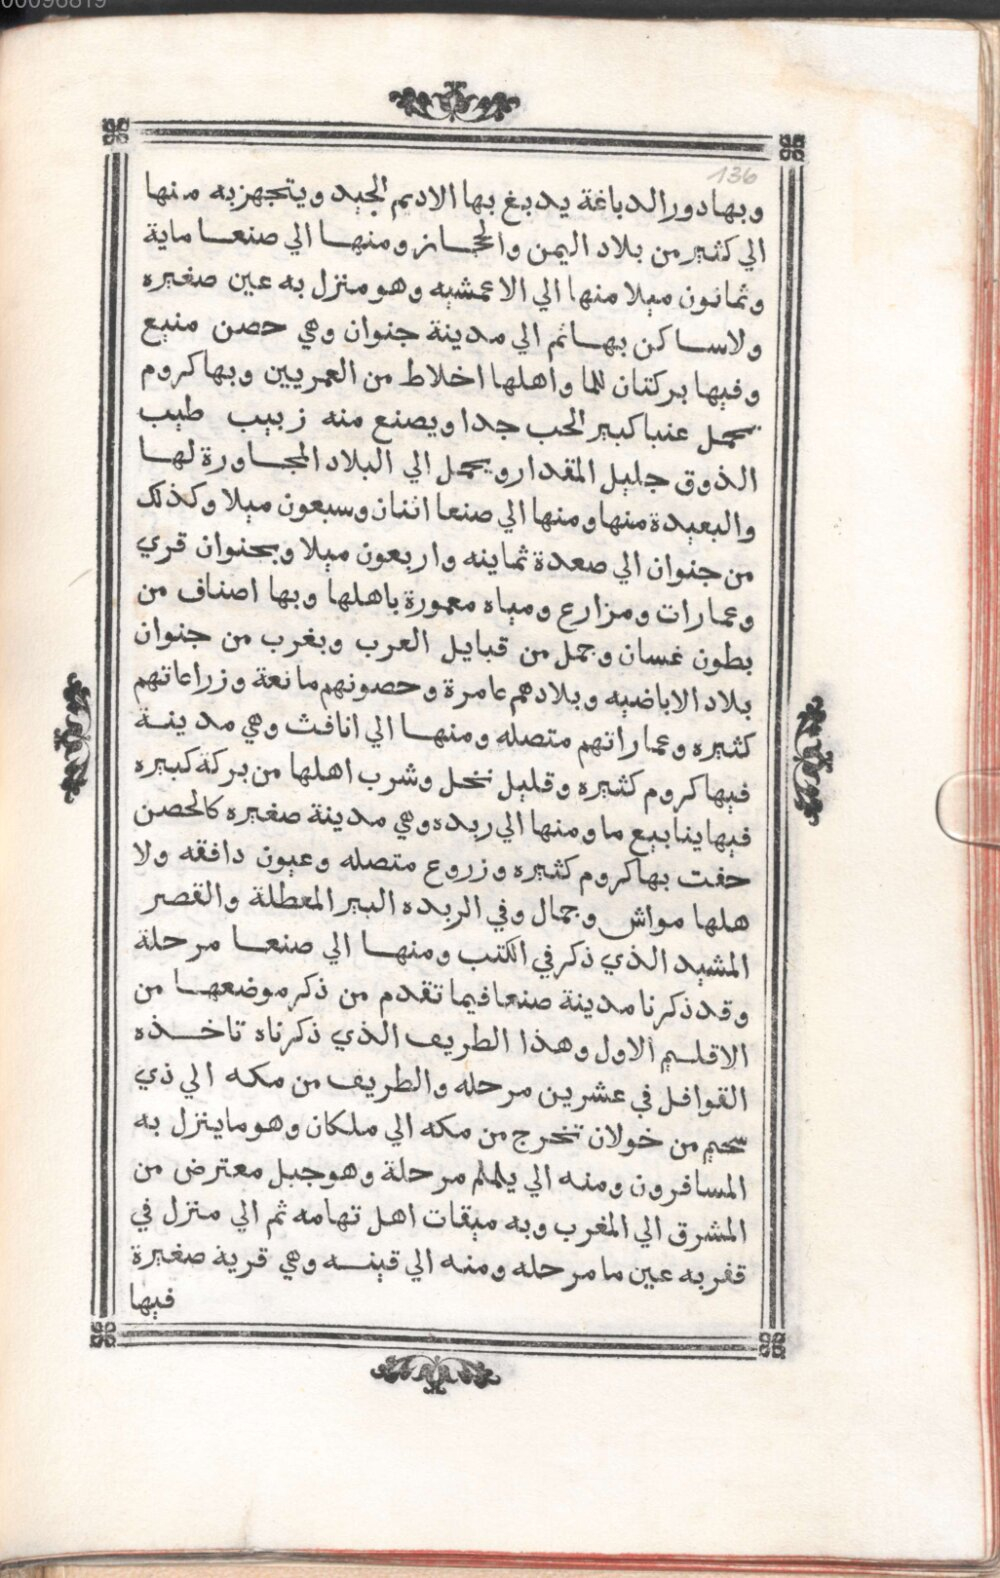 00096819
136
وبهادورالدباغة يدبغ بها الاديم الجيد ويتجهزبه منها
الي كثير من بلاد اليمن والحجاز ومنها الي صنعا ماية
وثمانون ميلا منها الي الاعمشيه وهو منزل به عين صغيره
ولاساكن بها ثم الي مدينة جنوان وهي حصن منيع
وفيها بركتان للما واهلها اخلاط من العمريين وبها كروم
تحمل عنبا كبير الحب جدا ويصنع منه زبيب طيب
الذوق جليل المقدار ويحمل الي البلاد المجاورة لها
والبعيدة منها ومنها الي صنعا اثنان وسبعون ميلا وكذلك
من جنوان الي صعدة ثماينه واربعون ميلا وبجنوان قري
وعمارات ومزارع ومياه معمورة باهلها وبها اصناف من
بطون غسان وجمل من قبايل العرب وبغرب من جنوان
بلاد الاباضيه وبلادهم عامرة وحصونهم مانعة وزراعاتهم
كثيره وعماراتهم متصله ومنها الي انافث وهي مدينة
فيها كروم كثيره وقليل نخل وشرب اهلها من بركة كبيره
فيها ينابيع ما ومنها الي ربده وهي مدينة صغيره كالحصن
حفت بها كروم كثيره وزروع متصله وعيون دافقه ولا
هلها مواش وجمال وفي الربده البير المعطلة والقصر
المشيد الذي ذكر في الكتب ومنها الي صنعا مرحلة
وقد ذكرنا مدينة صنعا فيما تقدم من ذكر موضعها من
الاقليم الاول وهذا الطريف الذي ذكرناه تاخذه
القوافل في عشرين مرحله والطريف من مكه الي ذي
سحيم من خولان تخرج من مكه الي ملكان وهو ماينزل به
المسافرون ومنه الي يلملم مرحلة وهو جبل معترض من
المشرق الي المغرب وبه ميقات اهل تهامه ثم الي منزل في
قفر به عين ما مرحله ومنه الي قينه وهي قرية صغيرة
فيها